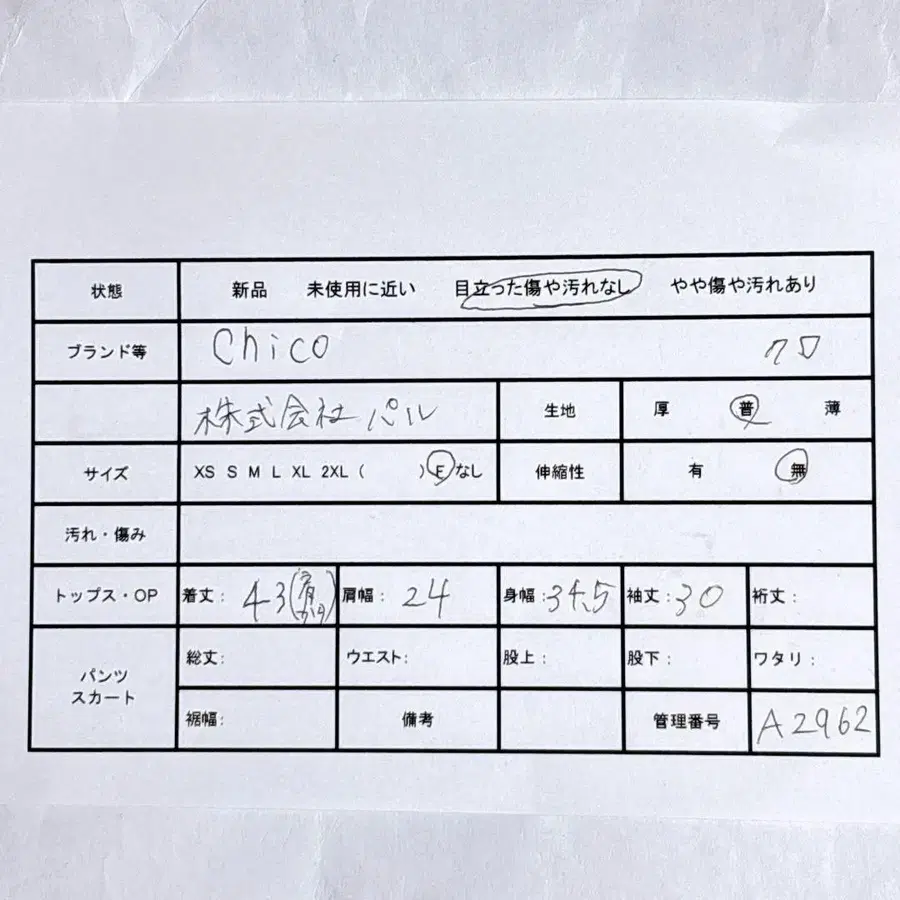 状態 新品 未使用に近い 目立った傷や汚れなし やや傷や汚れあり
ブランド等 Chico クロ
株式会社パル 生地 厚 普 薄
サイズ XS S M L XL 2XL ( ) F なし 伸縮性 有 無
汚れ・傷み
トップス・OP 着丈: 43 肩幅: 24 身幅: 34.5 袖丈: 30 裄丈:
パンツ スカート 総丈: ウエスト: 股上: 股下: ワタリ:
裾幅: 備考 管理番号 A2962